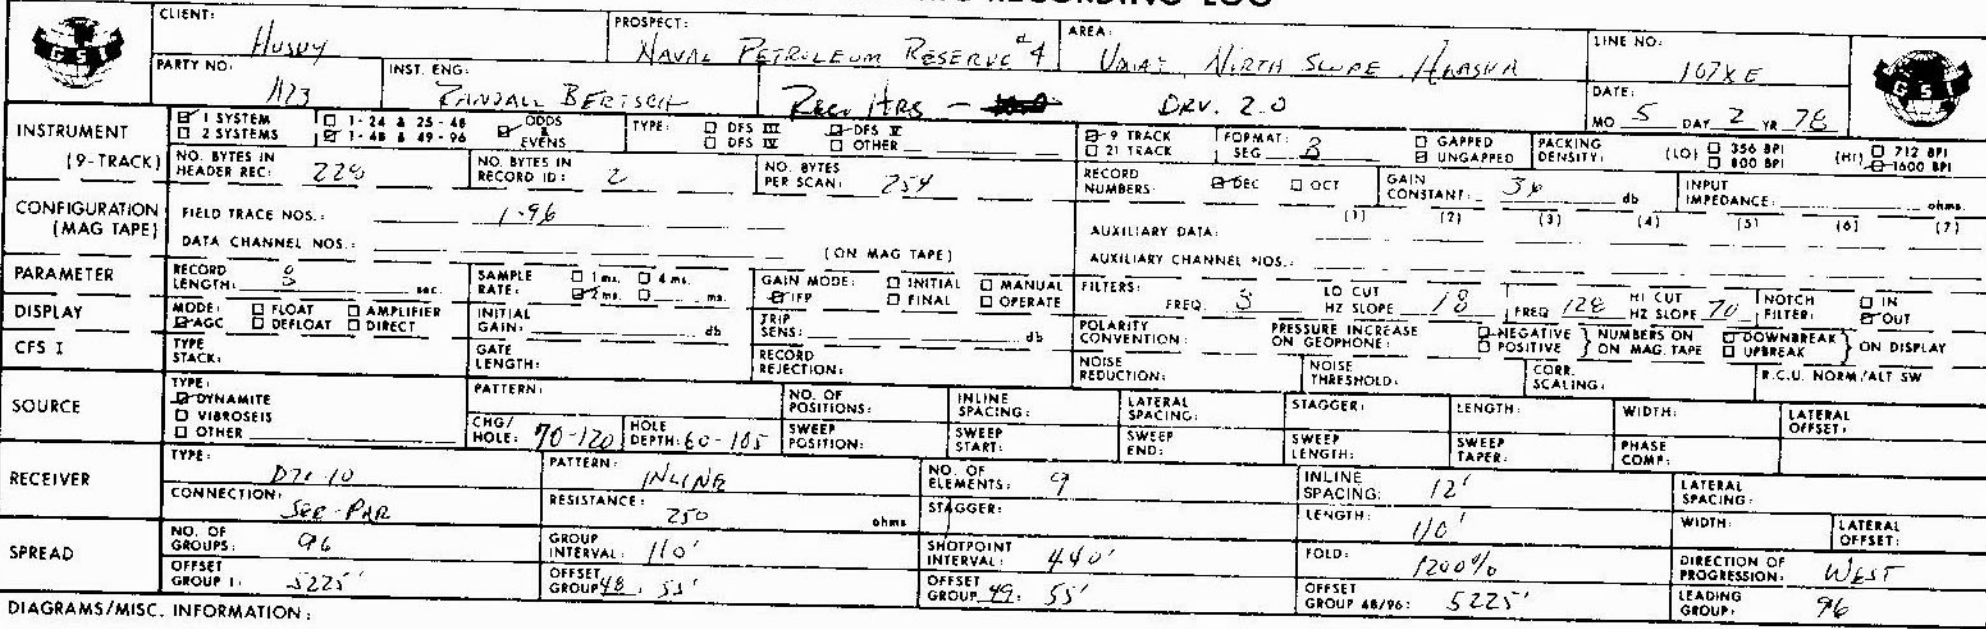 RECORDING LOG
GSI CLIENT: Husky PROSPECT: NAVAL PETROLEUM RESERVE #4 AREA: UMIAT, NORTH SLOPE, ALASKA LINE NO: 167XE GSI
PARTY NO: INST. ENG: RANDALL BERTSCH Rec. Hrs - DRV. 2.0 DATE: MO 5 DAY 2 YR 78
INSTRUMENT 1 SYSTEM 1-24 & 25-48 ODDS & EVENS TYPE: DFS III DFS V 9 TRACK FORMAT: SEG B GAPPED PACKING DENSITY: (LO) 356 BPI (HI) 712 BPI
2 SYSTEMS 1-48 & 49-96 DFS IV OTHER 21 TRACK UNGAPPED 800 BPI 1600 BPI
(9-TRACK) NO. BYTES IN HEADER REC: 228 NO. BYTES IN RECORD ID: 2 NO. BYTES PER SCAN: 254 RECORD NUMBERS: DEC OCT GAIN CONSTANT: 36 db INPUT IMPEDANCE: ohms.
CONFIGURATION (MAG TAPE) FIELD TRACE NOS.: 1-96 AUXILIARY DATA: (1) (2) (3) (4) (5) (6) (7)
DATA CHANNEL NOS.: (ON MAG TAPE) AUXILIARY CHANNEL NOS.:
PARAMETER RECORD LENGTH: sec. SAMPLE RATE: 1 ms. 4 ms. 2 ms. ms. GAIN MODE: INITIAL MANUAL IFP FINAL OPERATE FILTERS: FREQ. LO CUT HZ SLOPE 18 FREQ 128 HI CUT HZ SLOPE 70 NOTCH FILTER: IN OUT
DISPLAY MODE: FLOAT AMPLIFIER AGC DEFLOAT DIRECT INITIAL GAIN: db TRIP SENS: db POLARITY CONVENTION: PRESSURE INCREASE ON GEOPHONE: NEGATIVE POSITIVE NUMBERS ON MAG. TAPE DOWNBREAK UPBREAK ON DISPLAY
CFS I TYPE STACK: GATE LENGTH: RECORD REJECTION: NOISE REDUCTION: NOISE THRESHOLD: CORR. SCALING: R.C.U. NORM/ALT SW
SOURCE TYPE: DYNAMITE VIBROSEIS OTHER PATTERN: NO. OF POSITIONS: INLINE SPACING: LATERAL SPACING: STAGGER: LENGTH: WIDTH: LATERAL OFFSET:
CHG/HOLE: 70-120 HOLE DEPTH: 60-105 SWEEP POSITION: SWEEP START: SWEEP END: SWEEP LENGTH: SWEEP TAPER: PHASE COMP:
RECEIVER TYPE: PATTERN: INLINE NO. OF ELEMENTS: 9 INLINE SPACING: 12' LATERAL SPACING:
CONNECTION: SER-PAR RESISTANCE: 250 ohms STAGGER: LENGTH: 110' WIDTH: LATERAL OFFSET:
SPREAD NO. OF GROUPS: 96 GROUP INTERVAL: 110' SHOTPOINT INTERVAL: 440' FOLD: 1200% DIRECTION OF PROGRESSION: WEST
OFFSET GROUP 1: 5225' OFFSET GROUP 48: 55' OFFSET GROUP 49: 55' OFFSET GROUP 48/96: 5225' LEADING GROUP: 96
DIAGRAMS/MISC. INFORMATION: